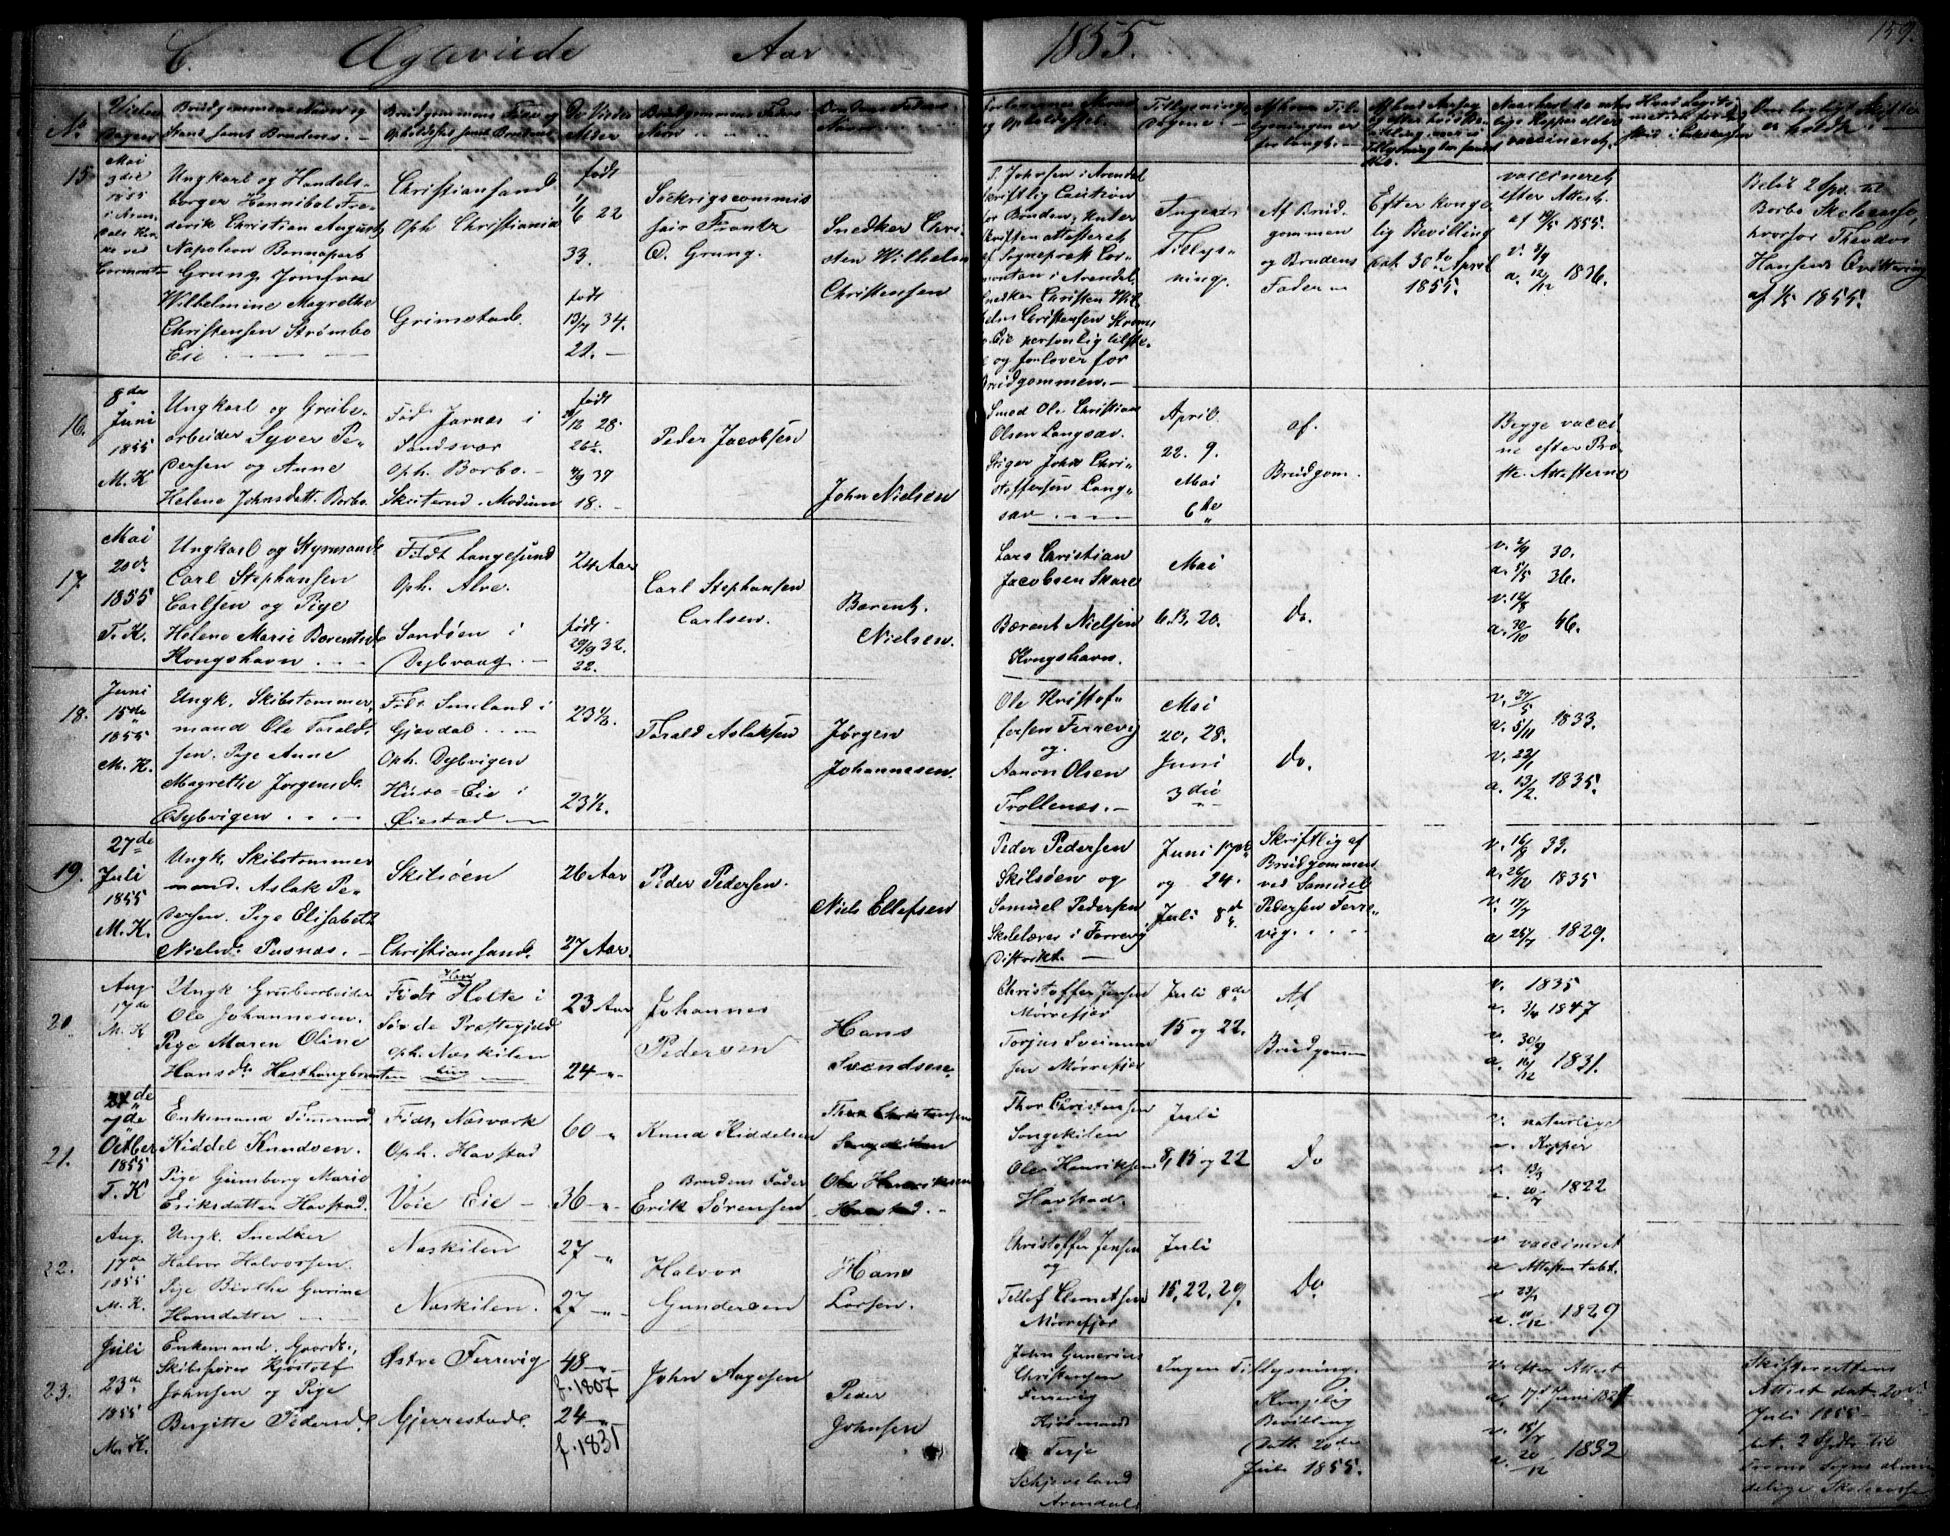 C. Ægteviede Aar 1855. 159.
No.
Vielses Dagen
Brudgommens Navn og
Stand samt Brudens. —
Brudgommens Fødested og
Opholdssted samt Brudens
De Viedes
Alder
Brudgommens Faders
Navn
Brudens Faders
Navn
Forlovernes Navne
og Opholdssted.
Tillysnings
Dagene
Af hvem Til-
lysningen er
forlangt. —
15
Mai
9die
1855
i Aren-
dals Kir-
ke ved
Cormontan
Ungkarl og Handels-
borger Hannibal Fre-
derik Christian August
Napoleon Bonnapart
Grung, Jomfru
Wilhelmine Magrethe
Christensen Strømbo
Eie
Christiansand
Oph Christiania
Grimstad.
født
1/6 22
33.
født
13/7 34.
21. —
Frantz
C. Grung.
Snedker Chri-
sten Wilhelm
Christensen
P. Johnsen i Arendal
skriftlig Caution
for Bruden, Under
skriften attesteret
af Sogneprest Cor-
montan i Arendal.
Snedker Christen Wil-
helm Christensen Strøms
bo Eie personlig tilste-
de og forlover for
Brudgommen. —
Ingen
Tillys-
ning.
Af Brud
gommen
og Brudens
Fader —
Efter Konge
lig Bevilling
dat. 30te April
1855.
vaccineret
efter Attest
af 1855.
v. 3/9
a. 12/12 1836.
Betalt 2 Spd. til
Borbo Skolecasse,
hvorfor Theodor
Hansens Qvittering
af 1/5 1855.
16.
8de
Juni
1855
M. K
Ungkarl og Grube-
arbeider Syver Pe-
dersen og Anne
Helene Johnsdatt. Borbo.
Født Jornes i
Sandsvær
Oph. Borbo. —
Skuterud Modum
født
28
26½.
37
18. —
Peder Jacobsen
John Nielsen
Smed Ole Christian
Olsen Langsæv.
Stiger John Chri-
stoffersen Lang-
sæv
April
22. 9.
Mai
6te
af
Brudgom.
Begge vacci
ne efter Præ
ste Attesterne
17.
Mai
20de
1855
T. K.
Ungkarl og Styrmand
Carl Stephansen
Carlsen og Pige
Helene Marie Berentsd.
Kongshavn
Født Langesund
Oph. Alve.
Sandøen i
Dybvaag. —
24 Aar
født
29/9 32.
22.
Carl Stephansen
Carlsen.
Berent
Nielsen.
Lars Christian
Jacobsen Skare
Berent Nielsen
Kongshavn.
Mai
6. 13. 20.
Do.
v. 2/9 30.
a. 5/5 36.
v. 12/8
a. 30/10 46.
18.
Juni
15de
1855
M. K.
Ungk. Skibstømmer-
mand Ole Torald-
sen. Pige Anne
Magrethe Jørgensd.
Dybvigen
Født Smeland i
Gjøvdal
Oph. Dybvigen
Huso-Eie i
Øiestad
23½.
23½.
Torald Aslaksen
Jørgen
Johannesen.
Ole Kristof-
fersen Ferrevig
og
Aanon Olsen
Trollenæs. —
Mai
20, 28.
Juni
3die
Do.
a. 5/11 1833.
v. 22/1
a. 13/12. 1835.
19.
27de
Juli
1855
M. K.
Ungk. Skibstømmer
mand. Aslak Pe-
dersen. Pige Elisabeth
Nielsd. Pusnæs. —
Skilsøen
Christiansand.
26 Aar
27 Aar.
Peder Pedersen.
Niels Ellefsen
Peder Pedersen
Skilsøen og
Samuel Pedersen
Skolelærer i Færrevig
Distrikt. —
Juni 17de
og 24.
Juli 8de
Skriftlig af
Brudgommen
ved Samuel
Pedersen Ferre-
vig.
v. 16/8 33.
a. 26/12 1835
v. 17/7
a 25/7 1829.
20.
Aug
17de
M. K
Ungk Grubearbeider
Ole Johannesen.
Pige Maren Oline
Hansd. Hesthaugbraaten
Født Holte i
Søvde Præstegjeld
Oph. Næskilen
23 Aar
24 —
Johannes
Pedersen
Hans
Svendsen
Christoffer Jensen
Mørrefjær
Torjus Sveinun
sen Mørrefjær
Juli 8de
15 og 22.
Af
Brudgommen
v. 1835
a. 3/4 1847
v. 30/9
a. 1831.
21.
7de
Octber
1855
T. K
Enkemand Tømmermd
Kiddel Knudsen.
Pige Gunborg Marie
Eriksdatter Havstad.
Født Næsverk
Oph. Havstad
Voie Eie —
60 —
36 —
Knud Kiddelsen
Brudens Fader
Erik Sørensen
Thor Christensen
Songekilen
Ole Henriksen
Havstad. —
Thor Christensen
Songekilen
Ole Henriksen
Havstad.
Juli
8, 15 og 22
Do
v. naturlige
a. Kopper
v. 13/9
a. 20/7 1822
22.
Aug.
17de
1855
M. K.
Ungk. Snedker
Halvor Halvorsen.
Pige Birthe Gurine
Hansdatter
Næskilen
Næskilen.
27 —
27 —
Halvor
Gundersen
Hans
Larsen.
Christoffer Jensen
og
Tellef Clemetsen
Mørrefjær
Juli
15, 22, 29.
Do
v vaccineret
a Attesten tabt.
v 23/1
a. 11/12 1829
23.
Juli
23de
1855
M. K.
Enkemand. Gaardbr.,
Skibsfører Kjøstolf
Johnsen og Pige
Bergitte Pedersd.
Østre Ferrevig
Gjerrestad.
48 —
f. 1807
24 —
f. 1831
John Aagesen
Peder
Johnsen
John Gunerius
Christensen
Ferrevig
Kjøbmand
Terje
Schjævesland
Arendal.
Ingen Tillysning.
Kongelig
Bevilling
Datt. 20de
Juli 1855.
v. efter Attest
af 17de Juni
v. 15/7
a. 20/12 1832
Skifterettens
Attest dat. 20de
Juli 1855 —
bet. 2 Spdlr til
Tromø Sogns almin
delige Skolecasse